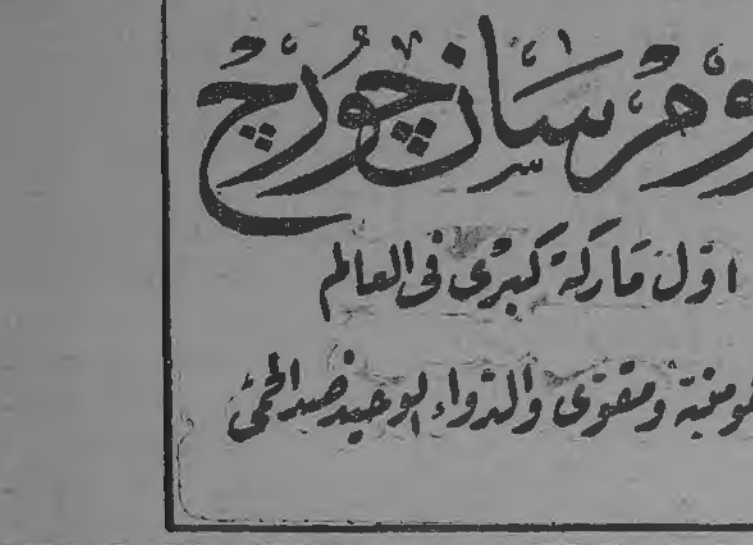 سان چورچ
اوّل مَاركة كبرى فى العالم
ومقوّى والدّواء الوحيد ضد الحمّى